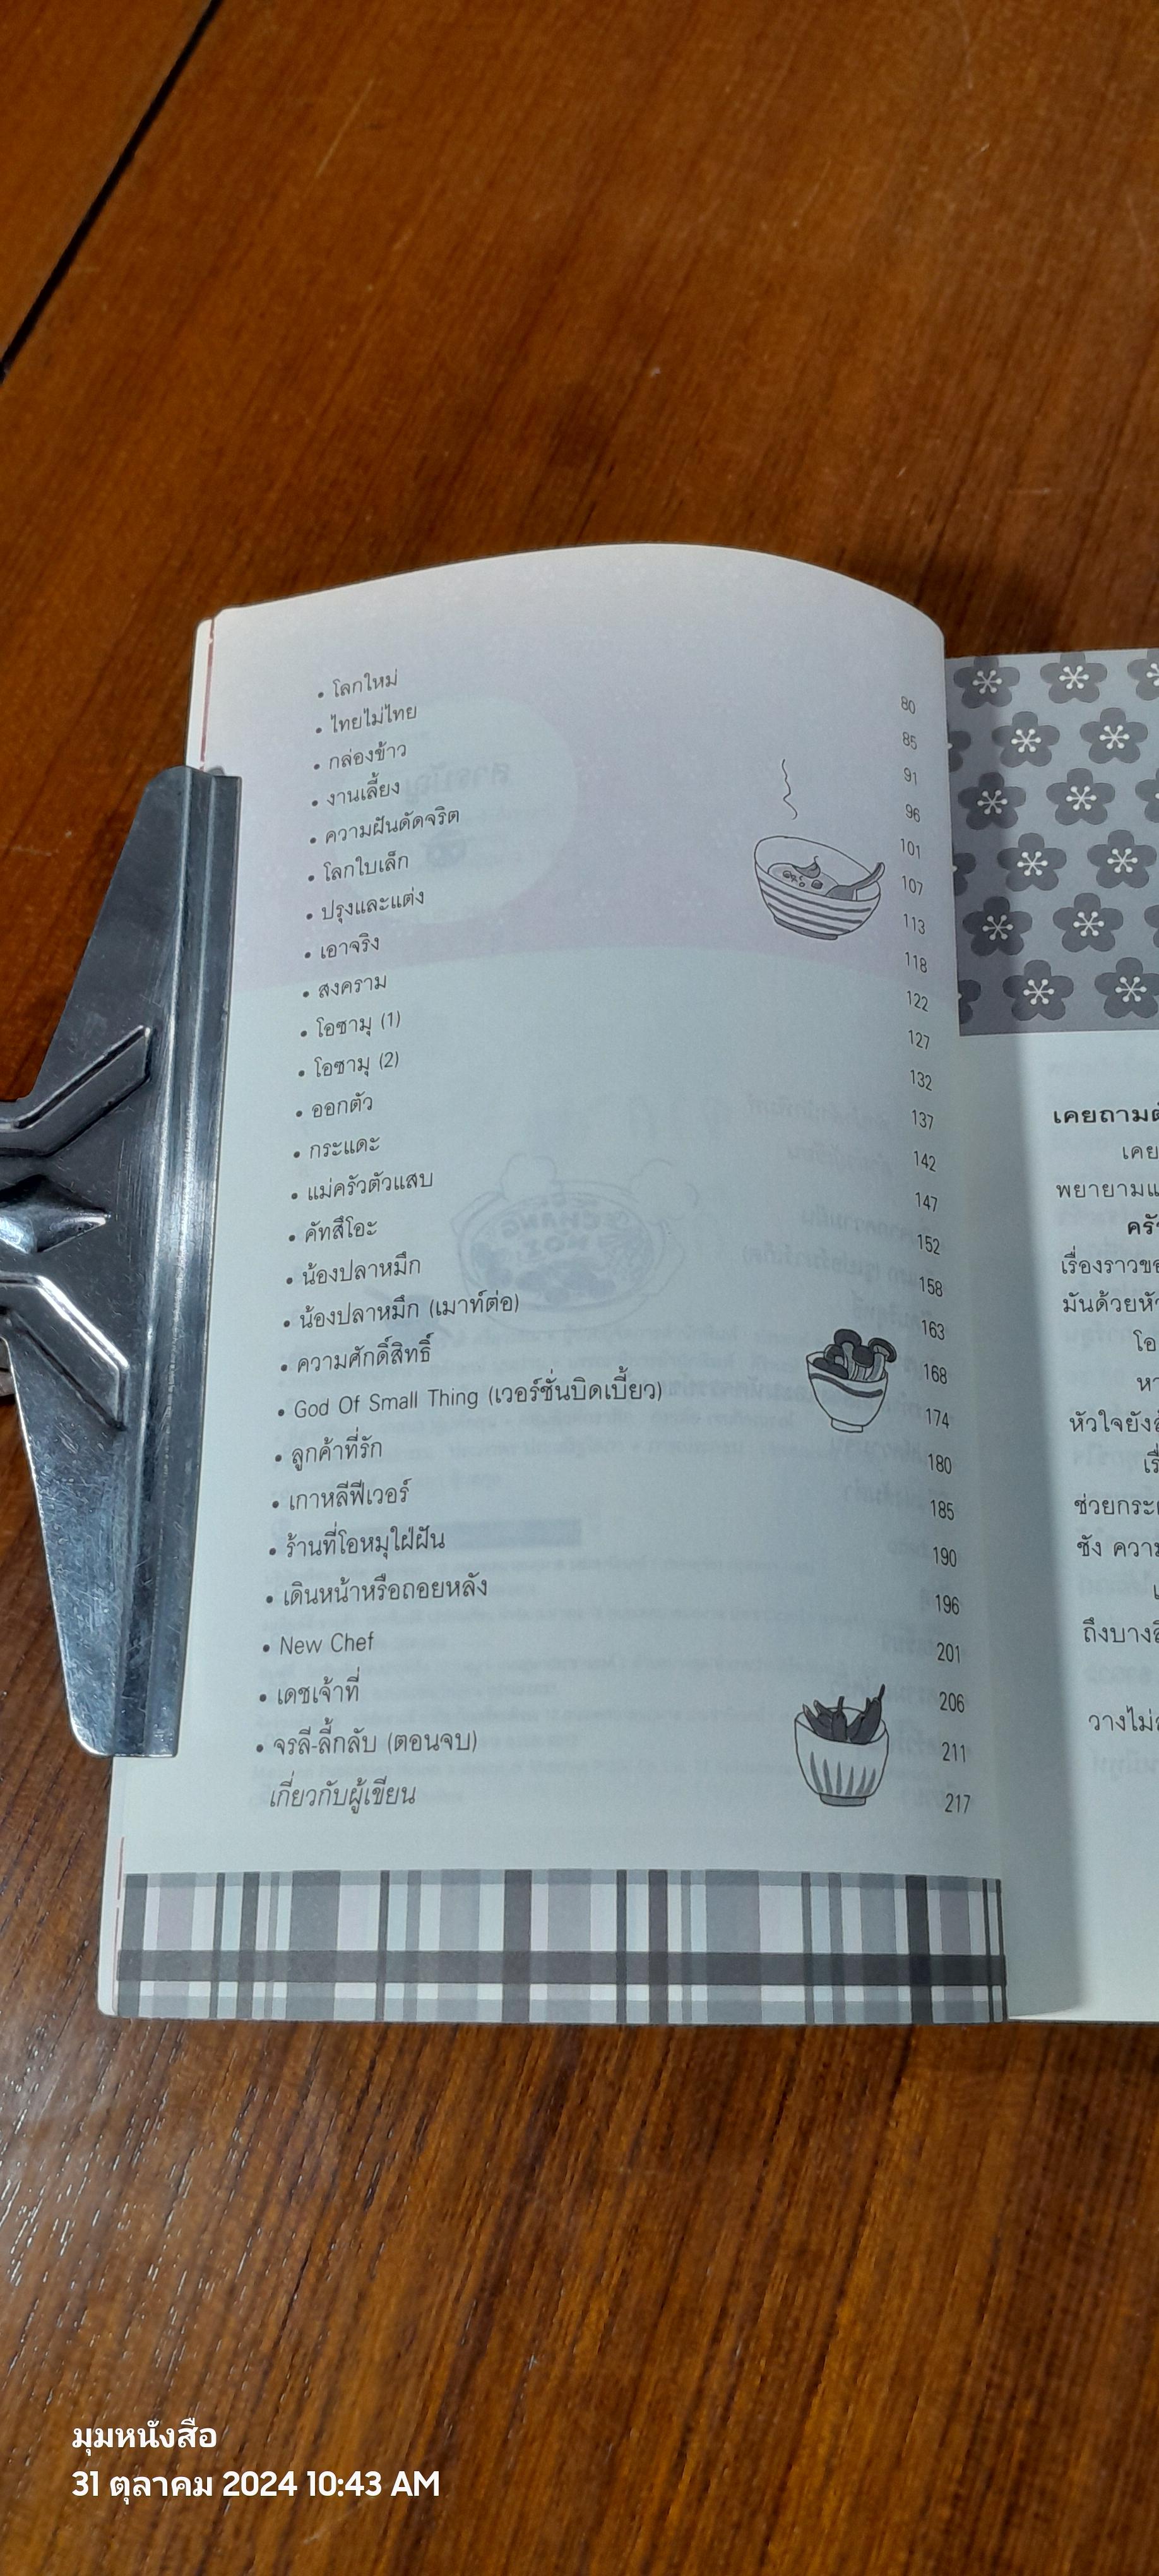 • โลกใหม่ 80
• ไทยไม่ไทย 85
• กล่องข้าว 91
• งานเลี้ยง 96
• ความฝันดัดจริต 101
• โลกใบเล็ก 107
• ปรุงและแต่ง 113
• เอาจริง 118
• สงคราม 122
• โอซามุ (1) 127
• โอซามุ (2) 132
• ออกตัว 137
• กระแดะ 142
• แม่ครัวตัวแสบ 147
• คัทสึโอะ 152
• น้องปลาหมึก 158
• น้องปลาหมึก (เมาท์ต่อ) 163
• ความศักดิ์สิทธิ์ 168
• God Of Small Thing (เวอร์ชั่นบิดเบี้ยว) 174
• ลูกค้าที่รัก 180
• เกาหลีฟีเวอร์ 185
• ร้านที่โอหมุใฝ่ฝัน 190
• เดินหน้าหรือถอยหลัง 196
• New Chef 201
• เดชเจ้าที่ 206
• จรลี-ลี้กลับ (ตอนจบ) 211
เกี่ยวกับผู้เขียน 217
เคยถามตั
เคย
พยายามแ
ครั
เรื่องราวขอ
มันด้วยหั
โอ
หา
หัวใจยัง
เรื่
ช่วยกระ
ชัง ความ
ถึงบางสิ
วางไม่
มุมหนังสือ
31 ตุลาคม 2024 10:43 AM